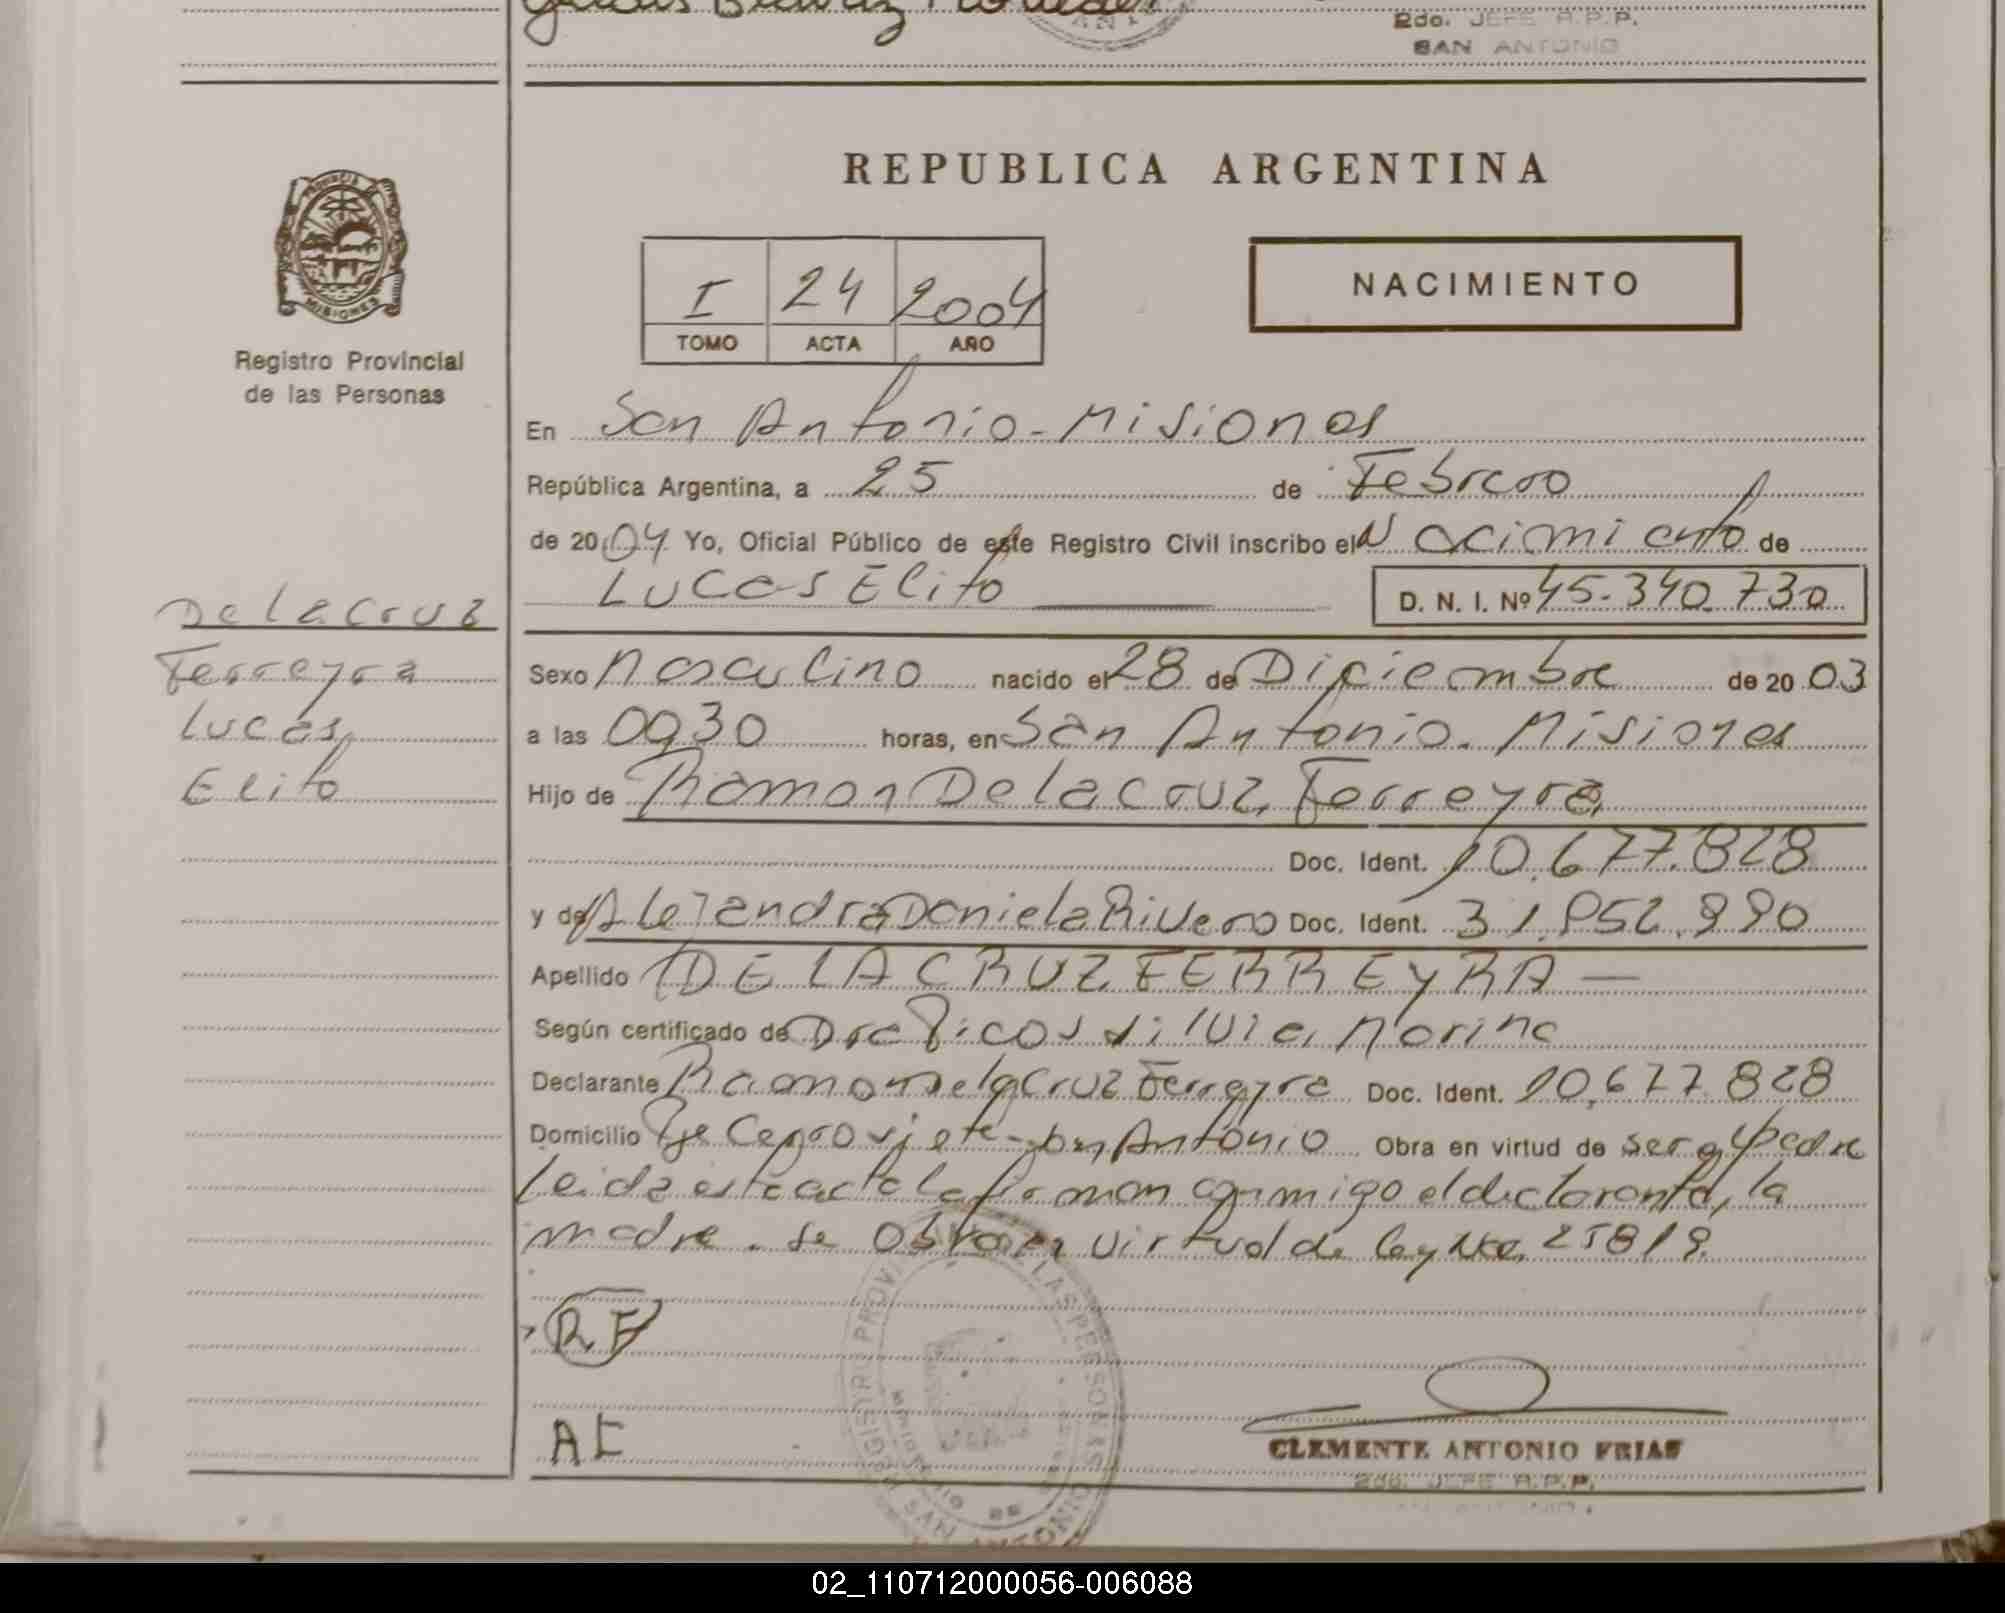 2do. JEFE R.P.P.
SAN ANTONIO
REPUBLICA ARGENTINA
PROVINCIA
MISIONES
Registro Provincial
de las Personas
I 24 2004
TOMO ACTA AÑO
NACIMIENTO
En San Antonio - Misiones
República Argentina, a 25 de Febrero
de 2004 Yo, Oficial Público de este Registro Civil inscribo el Nacimiento de
Lucas Elito
D. N. I. Nº 45.340.730
De la Cruz
Ferreyra
Lucas
Elito
Sexo Masculino nacido el 28 de Diciembre de 2003
a las 0930 horas, en San Antonio. Misiones
Hijo de Ramon De la Cruz Ferreyra
Doc. Ident. 10.677.828
y de Alejandra Daniela Rivero Doc. Ident. 31.952.990
Apellido DE LA CRUZ FERREYRA —
Según certificado de Dra Picos Silvia Marina
Declarante Ramon De la Cruz Ferreyra Doc. Ident. 10.677.828
Domicilio Antonio Obra en virtud de ser el Padre
Leida este acta la firman conmigo el declarante, la
madre. Se Obra en virtud de Ley Nro. 25819.
RF
AE
REGISTRO PROVINCIAL DE LAS PERSONAS
SAN ANTONIO
CLEMENTE ANTONIO FRIAS
2do. JEFE R.P.P.
02_110712000056-006088